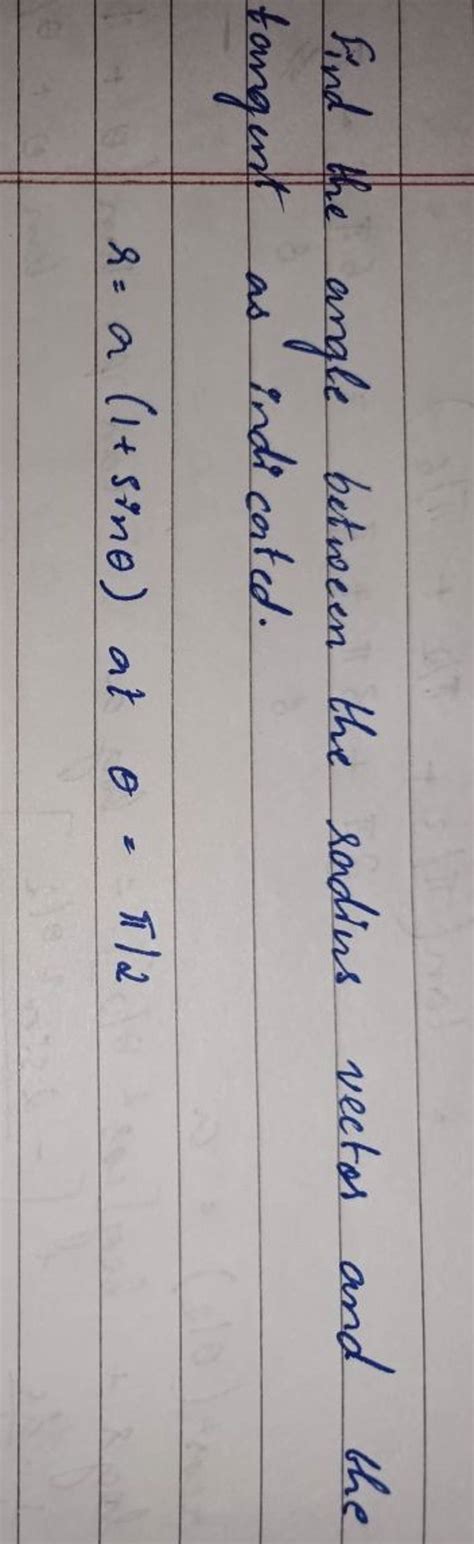 Find the angle between the radius vector and the
tangent as indicated.
r = a (1 + sinθ) at θ = π/2